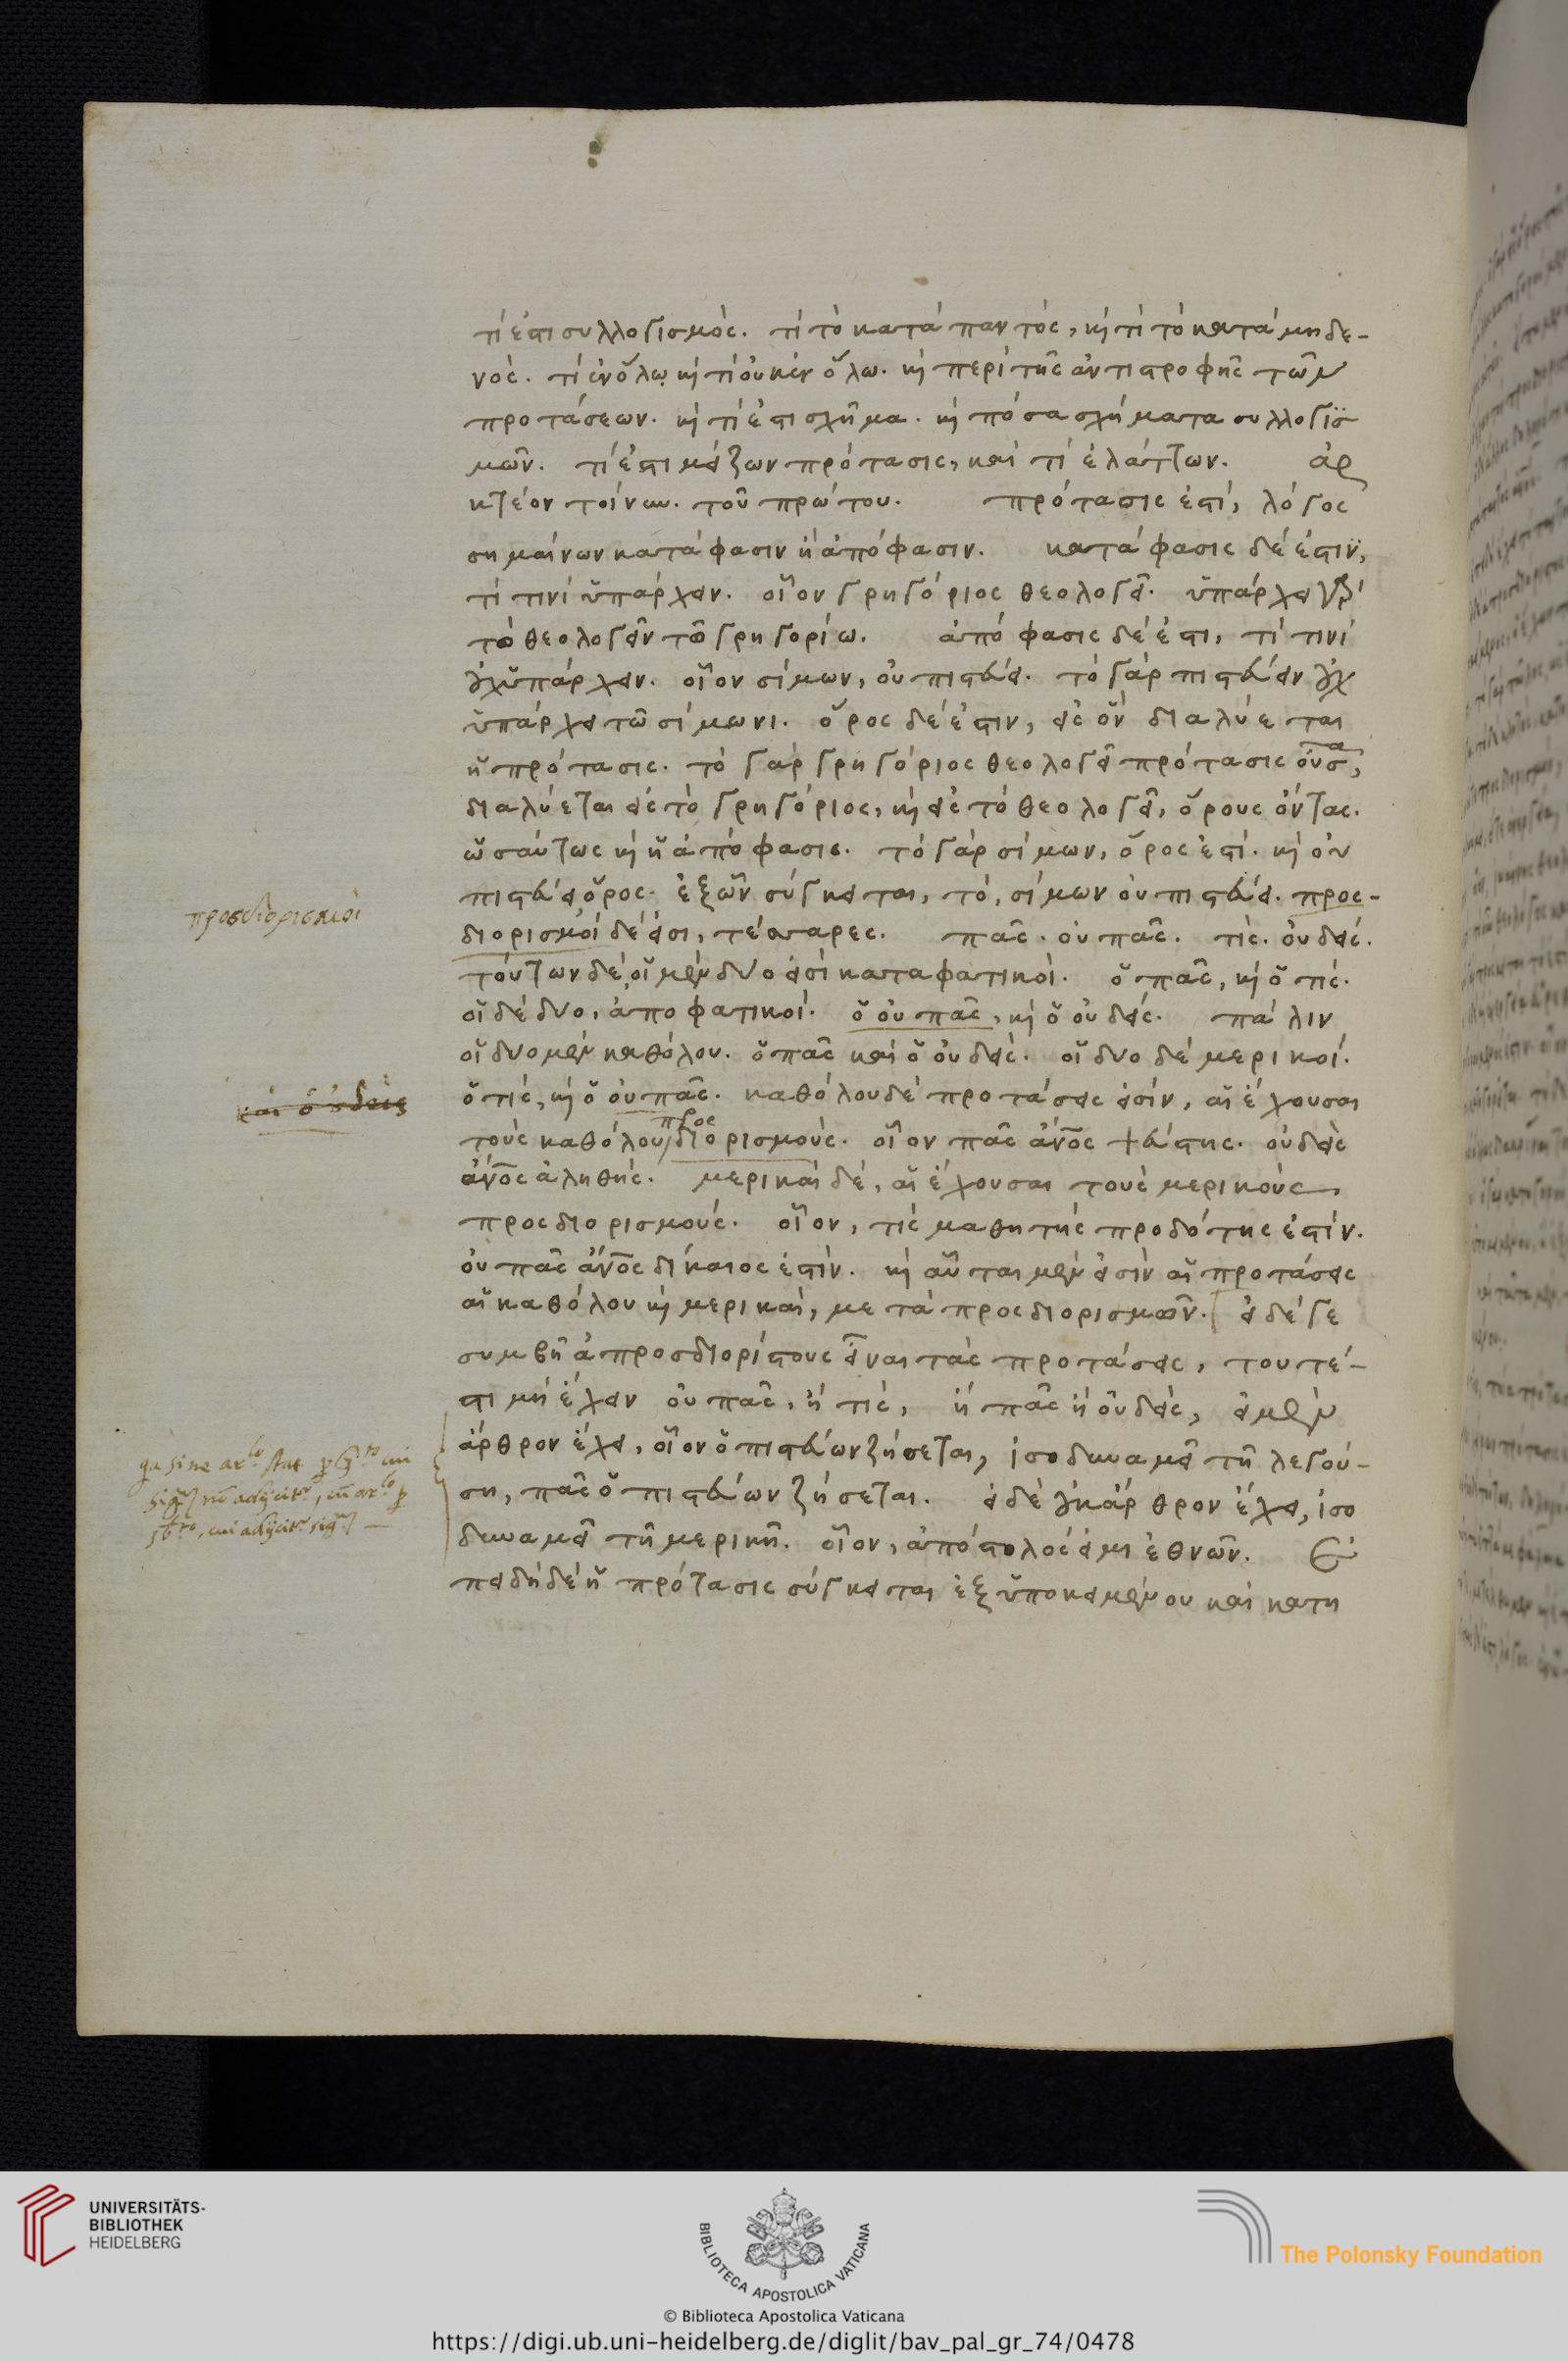 τί ἐστι συλλογισμός. τί τὸ κατὰ παντός, κὶ τί τὸ κατὰ μηδε-
νός. τί ἐν ὅλῳ κὶ τί οὐκ ἐν ὅλω. κὶ περὶ τῆς ἀντιστροφῆς τῶν
προτάσεων. κὶ τί ἐστι σχῆμα. κὶ πόσα σχήματα συλλογισ
μῶν. τί ἐστι μείζων πρότασις, καὶ τί ἐλάττων. ἀρ
κτέον τοίνυν. τοῦ πρώτου. πρότασις ἐστί, λόγος
σημαίνων κατάφασιν ἢ ἀπόφασιν. κατάφασις δέ ἐστιν,
τὶ τινὶ ὑπάρχειν. οἷον γρηγόριος θεολογεῖ. ὑπάρχει γὰρ
τὸ θεολογεῖν τῶ γρηγορίω. ἀπόφασις δέ ἐστι, τὶ τινὶ
οὐχ ὑπάρχειν. οἷον σίμων, οὐ πιστεύει. τὸ γὰρ πιστεύειν οὐχ
ὑπάρχει τῶ σίμωνι. ὅρος δέ ἐστιν, εἰς ὃν διαλύεται
ἡ πρότασις. τὸ γὰρ γρηγόριος θεολογεῖ πρότασις οὖσα,
διαλύεται εἰς τὸ γρηγόριος, κὶ εἰς τὸ θεολογεῖ, ὅρους ὄντας.
ὡσαύτως κὶ ἡ ἀπόφασις. τὸ γὰρ σίμων, ὅρος ἐστί. κὶ οὐ
πιστεύει ὅρος. ἐξ ὧν σύγκειται, τό, σίμων οὐ πιστεύει. προς-
προσδιορισμοὶ
διορισμοὶ δέ εἰσι, τέσσαρες. πᾶς. οὐ πᾶς. τίς. οὐδείς.
τούτων δέ, οἱ μὲν δύο εἰσὶ καταφατικοί. ὁ πᾶς, κὶ ὁ τίς.
οἱ δὲ δύο, ἀποφατικοί. ὁ οὐ πᾶς, κὶ ὁ οὐδείς. πάλιν
οἱ δύο μὲν καθόλου. ὁ πᾶς καὶ ὁ οὐδείς. οἱ δύο δὲ μερικοί.
καὶ ὁ οὐδεὶς
ὁ τίς, κὶ ὁ οὐ πᾶς. καθόλου δὲ προτάσεις εἰσίν, αἱ ἔχουσαι
τοὺς καθόλου προςδιορισμούς. οἷον πᾶς ἄνος ψεύστης. οὐδεὶς
ἄνος ἀληθής. μερικαὶ δέ, αἱ ἔχουσαι τοὺς μερικοὺς
προςδιορισμούς. οἷον, τίς μαθητὴς προδότης ἐστίν.
οὐ πᾶς ἄνος δίκαιος ἐστίν. κὶ αὗται μέν εἰσιν αἱ προτάσεις
αἱ καθόλου κὶ μερικαί, μετὰ προςδιορισμῶν. εἰ δέ γε
συμβῆ ἀπροσδιορίστους εἶναι τὰς προτάσεις, τουτέ-
στι μὴ ἔχειν οὐ πᾶς, ἢ τίς, ἢ πᾶς ἢ οὐδείς, εἰ μὲν
ἄρθρον ἔχει, οἷον ὁ πιστεύων ζήσεται, ἰσοδυναμεῖ τῆ λεγού-
ση, πᾶς ὁ πιστεύων ζήσεται. εἰ δὲ οὐκ ἄρθρον ἔχει, ἰσο
δυναμεῖ τῆ μερικῆ. οἷον, ἀπόστολός εἰμι ἐθνῶν. ἐ
πειδὴ δὲ ἡ πρότασις σύγκειται ἐξ ὑποκειμένου καὶ κατη
UNIVERSITÄTS-
BIBLIOTHEK
HEIDELBERG
BIBLIOTECA APOSTOLICA VATICANA
The Polonsky Foundation
© Biblioteca Apostolica Vaticana
https://digi.ub.uni-heidelberg.de/diglit/bav_pal_gr_74/0478